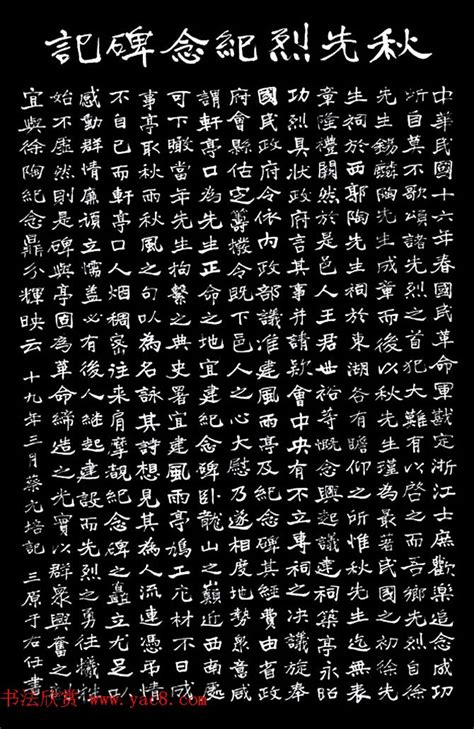 秋先烈紀念碑記
中華民國十六年春國民革命軍戡定浙江士庶歡樂追念成功
所自莫不歌頌諸先烈之首犯大難有以啓之而吾鄉先烈徐
先生錫麟陶先生成章而後以秋先生瑾為最著民國之初徐先
生祠於西郭陶先生祠於東湖各有瞻仰之所惟秋先生迄無表
章隆禮闕然於是邑人王君世裕等慨念興起議建築亭永昭
功烈具狀政府言其事并請款會中央有不立專祠之決議旋奉
國民政府令依內政部議准建風雨亭及紀念碑其經費由省
府會縣估定籌撥令既下邑人之心大慰乃遂相度地勢眾意咸
謂軒亭口為先生正命之地宜建紀念碑臥龍山之巔西南更
可下瞰當年先生拘繫之典史署宜建風雨亭鳩工庀材不日成
事亭取秋雨秋風之句以為名詠其詩想見其為人流連憑弔情
不自已而軒亭口人烟稠密往來肩摩覩紀念碑之矗立尤足以
感動群情廉頑立懦蓋必有後人繼起建設而先烈之勇往犧牲
始不虛然則是碑與亭固為革命締造之光實以群眾興奮之劑
宜與徐陶紀念鼎分輝映云 十九年三月蔡元培記 三原于右任書
书法欣赏 www.yac8.com